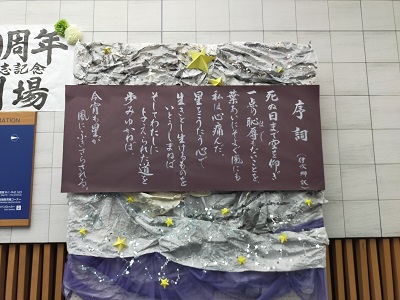 周年
志記念
劇場
序詞
(伊吹郷訳)
死ぬ日まで空を仰ぎ
一点の恥辱なきことを、
葉あいにそよぐ風にも
私は心痛んだ。
星をうたう心で
生きとし生けるものを
いとおしまねば
そしてわたしに
与えられた道を
歩みゆかねば。
今宵も星が
風にふきさらされる。